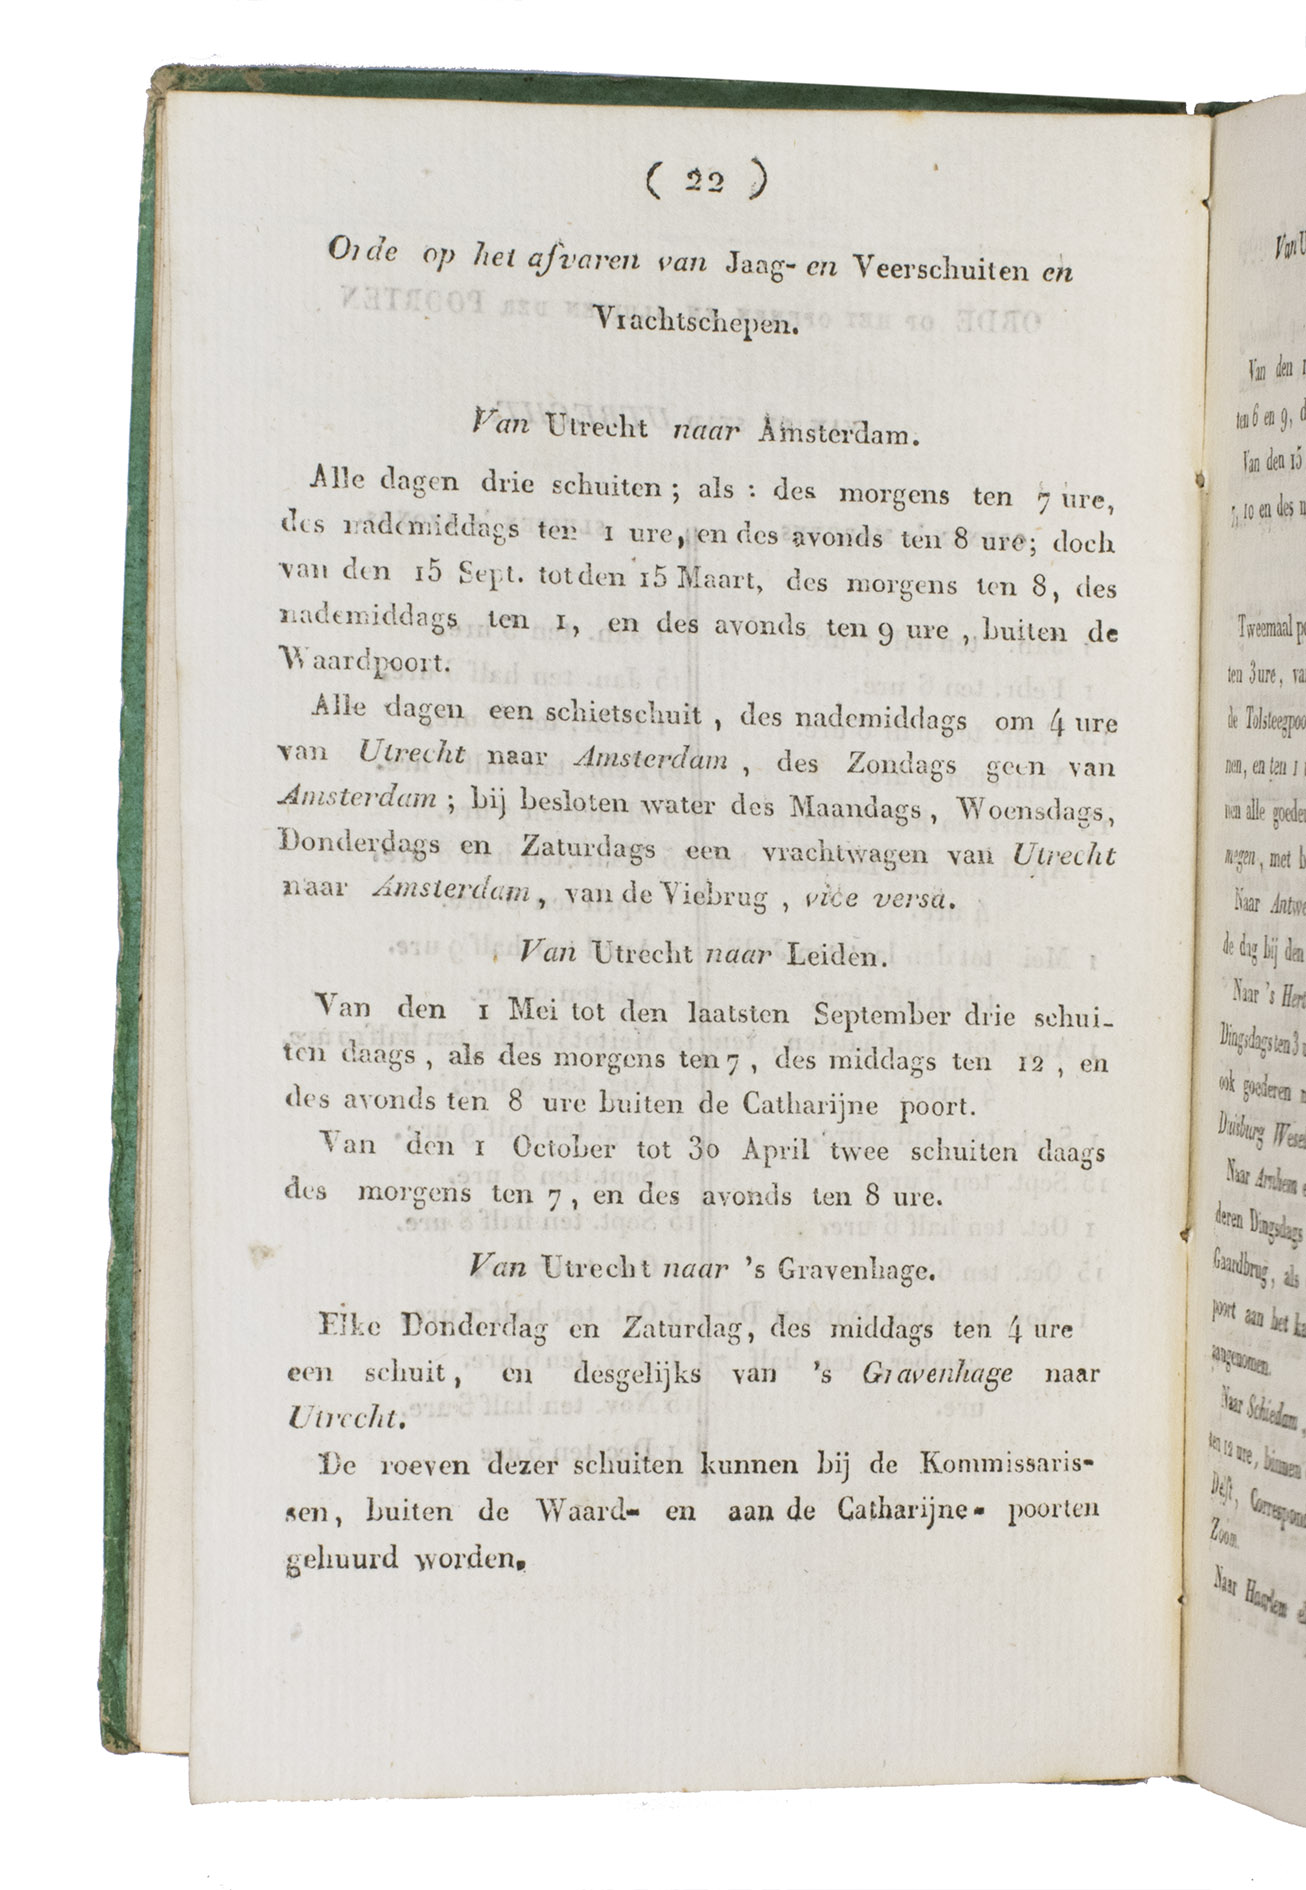 ( 22 )
Orde op het afvaren van Jaag- en Veerschuiten en
Vrachtschepen.
Van Utrecht naar Amsterdam.
Alle dagen drie schuiten ; als : des morgens ten 7 ure,
des nademiddags ten 1 ure, en des avonds ten 8 ure; doch
van den 15 Sept. tot den 15 Maart, des morgens ten 8, des
nademiddags ten 1, en des avonds ten 9 ure , buiten de
Waardpoort.
Alle dagen een schietschuit , des nademiddags om 4 ure
van Utrecht naar Amsterdam , des Zondags geen van
Amsterdam ; bij besloten water des Maandags , Woensdags,
Donderdags en Zaturdags een vrachtwagen van Utrecht
naar Amsterdam , van de Viebrug , vice versa.
Van Utrecht naar Leiden.
Van den 1 Mei tot den laatsten September drie schui-
ten daags , als des morgens ten 7 , des middags ten 12 , en
des avonds ten 8 ure buiten de Catharijne poort.
Van den 1 October tot 30 April twee schuiten daags
des morgens ten 7 , en des avonds ten 8 ure.
Van Utrecht naar 's Gravenhage.
Elke Donderdag en Zaturdag, des middags ten 4 ure
een schuit, en desgelijks van 's Gravenhage naar
Utrecht.
De roeven dezer schuiten kunnen bij de Kommissaris-
sen, buiten de Waard- en aan de Catharijne- poorten
gehuurd worden.
Van
Van den
ten 6 en 9,
Van den 15
7, 10 en des
Tweemaal
ten 3 ure,
de
nen, en ten 1
nen alle
megen, met
Naar
de dag bij den
Naar 's
Dingsdags ten 3
ook goederen
Duisburg
Naar Arnhem
deren Dingsdags
Gaardbrug, als
poort aan het
aangenomen.
Naar Schiedam,
ten 12 ure, binnen
Delft,
Zoom.
Naar Haarlem